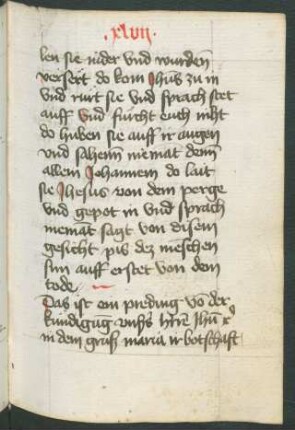 .xlvii.
len sie nider vnd wurden
versert do kom Jhūs zu in
vnd rurt sie vnd sprach stet
auff vnd furcht euch niht
do huben sie auff ir augen
vnd sahenn niemat denn
allein Johannem do lait
sie Jhesus von dem perge
vnd gepot in vnd sprach
niemat sagt von disem
gesicht pis dez menschen
sun auff erstet von dem
tode
Das ist ein prediug vō der
kundigūg vnsers hrē Jhū
in dem gruß maria ir botschaft